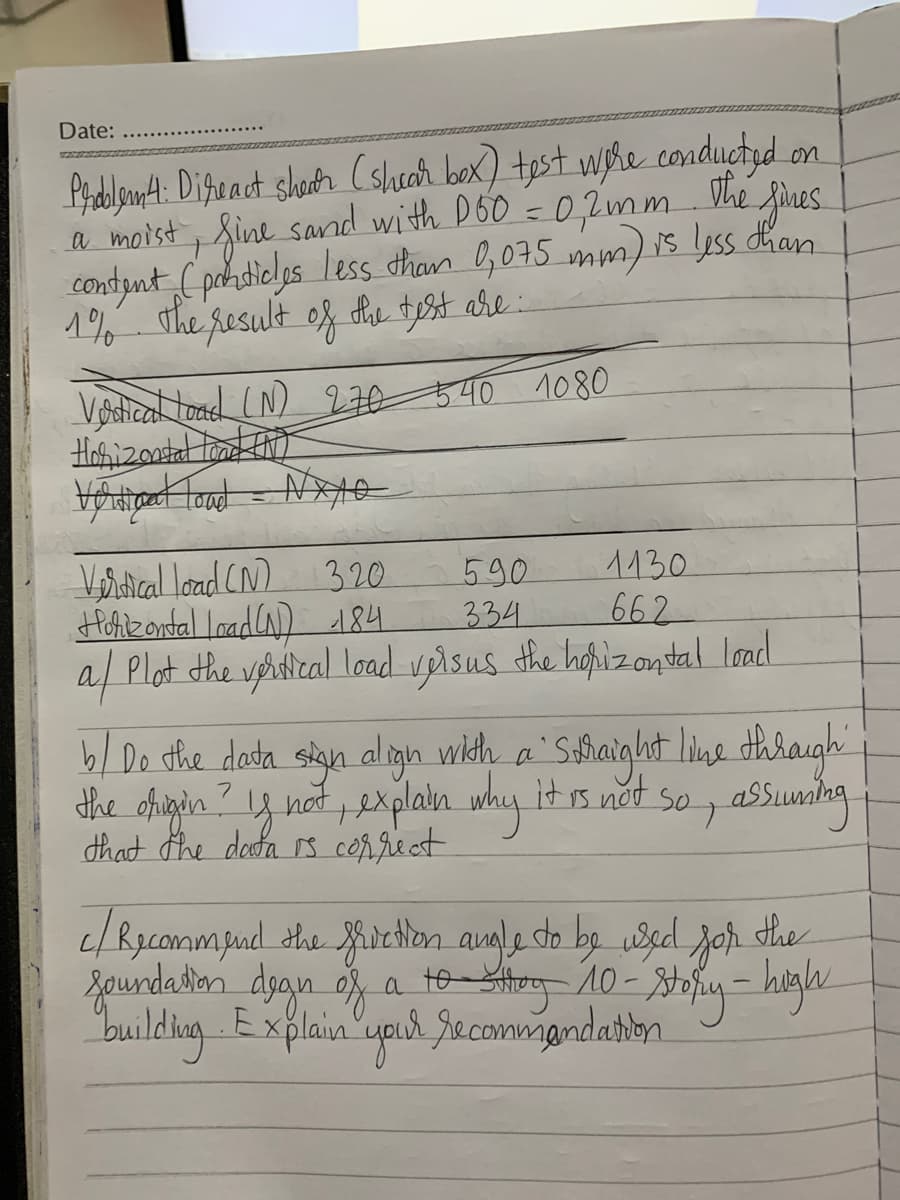 Date: .....................
Problem 4: Direact shear (shear box) test were conducted on
a moist, fine sand with D50 = 0,2mm. The fines
content (particles less than 0,075 mm) is less than
1%. The result of the test are:
Vertical load (N) 270 540 1080
Horizontal load (N)
Vertical load = N x 10
Vertical load (N) 320 590 1130
Horizontal load (N) 184 334 662
a/ Plot the vertical load versus the horizontal load
b/ Do the data sign align with a straight line through
the origin? If not, explain why it is not so, assuming
that the data is correct
c/ Recommend the friction angle to be used for the
foundation degn of a to 10-story-high
building. Explain your recommendation